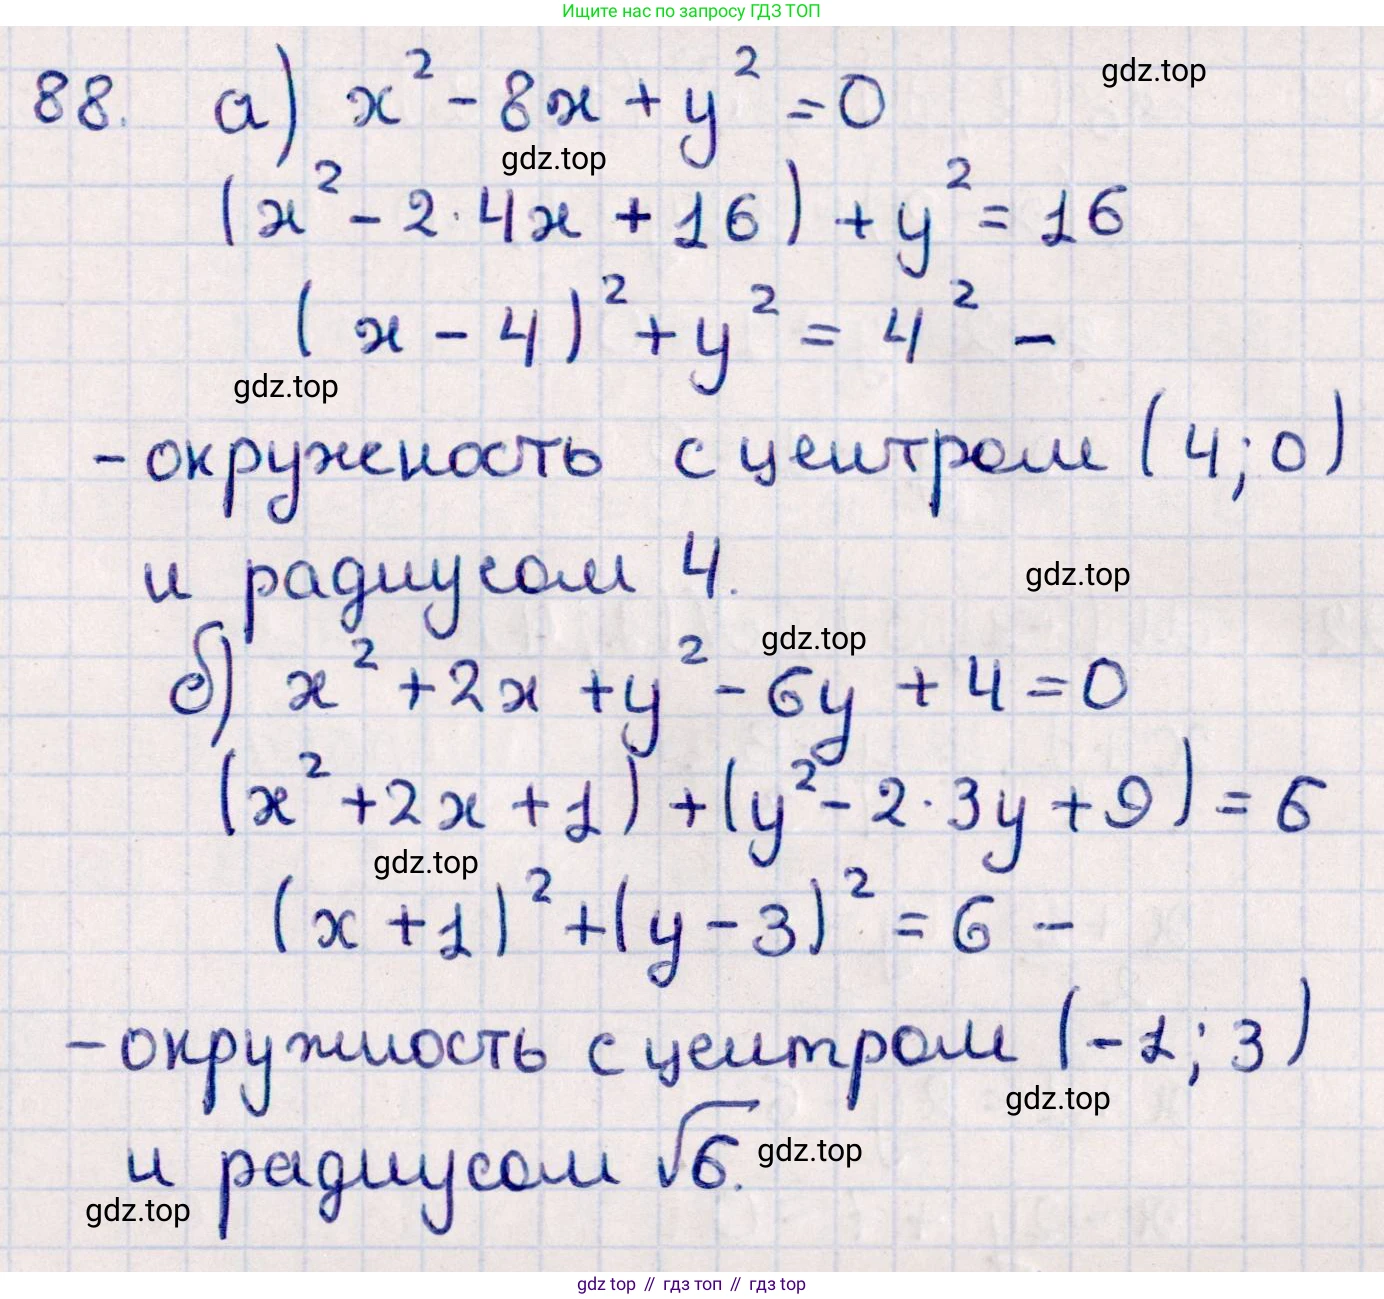 Ищите нас по запросу ГДЗ ТОП
88. а) x² - 8x + y² = 0
gdz.top
gdz.top
(x² - 2·4x + 16) + y² = 16
(x - 4)² + y² = 4² -
gdz.top
- окружность с центром (4; 0)
и радиусом 4.
gdz.top
gdz.top
б) x² + 2x + y² - 6y + 4 = 0
(x² + 2x + 1) + (y² - 2·3y + 9) = 6
gdz.top
(x + 1)² + (y - 3)² = 6 -
- окружность с центром (-1; 3)
gdz.top
и радиусом √6.
gdz.top
gdz.top
gdz top // гдз топ // гдз top